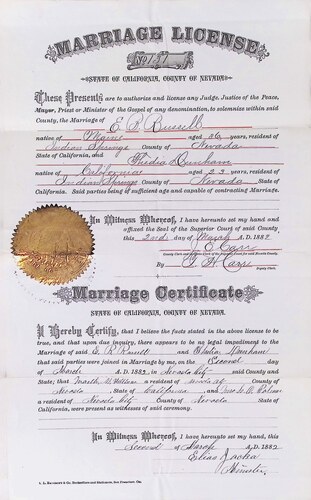 MARRIAGE LICENSE
STATE OF CALIFORNIA, COUNTY OF NEVADA.
These Presents are to authorize and license any Judge, Justice of the Peace,
Mayor, Priest or Minister of the Gospel of any denomination, to solemnize within said
County, the Marriage of E. P. Russell
native of Maine aged 36 years, resident of
Indian Springs County of Nevada
State of California, and Dunham
native of California aged 22 years, resident of
Indian Springs County of Nevada State of
California. Said parties being of sufficient age and capable of contracting Marriage.
In Witness Whereof, I have hereunto set my hand and
affixed the Seal of the Superior Court of said County
this 2nd day of March A.D. 1882
J. E. Carr
County Clerk and
By Carr
Deputy Clerk.
Marriage Certificate
STATE OF CALIFORNIA, COUNTY OF NEVADA.
I Hereby Certify, that I believe the facts stated in the above license to
be true, and that upon due inquiry, there appears to be no legal impediment to the
Marriage of said E. P. Russell and Dunham
that said parties were joined in Marriage by me, on the Second day
of March A.D. 1882, in Nevada City said County and
State; that a resident of County of
Nevada, State of California and
a resident of Nevada City County of Nevada State of
California, were present as witnesses of said ceremony.
In Witness Whereof, I have hereunto set my hand this
Second of March A.D. 1882
Elias Jacka
Minister